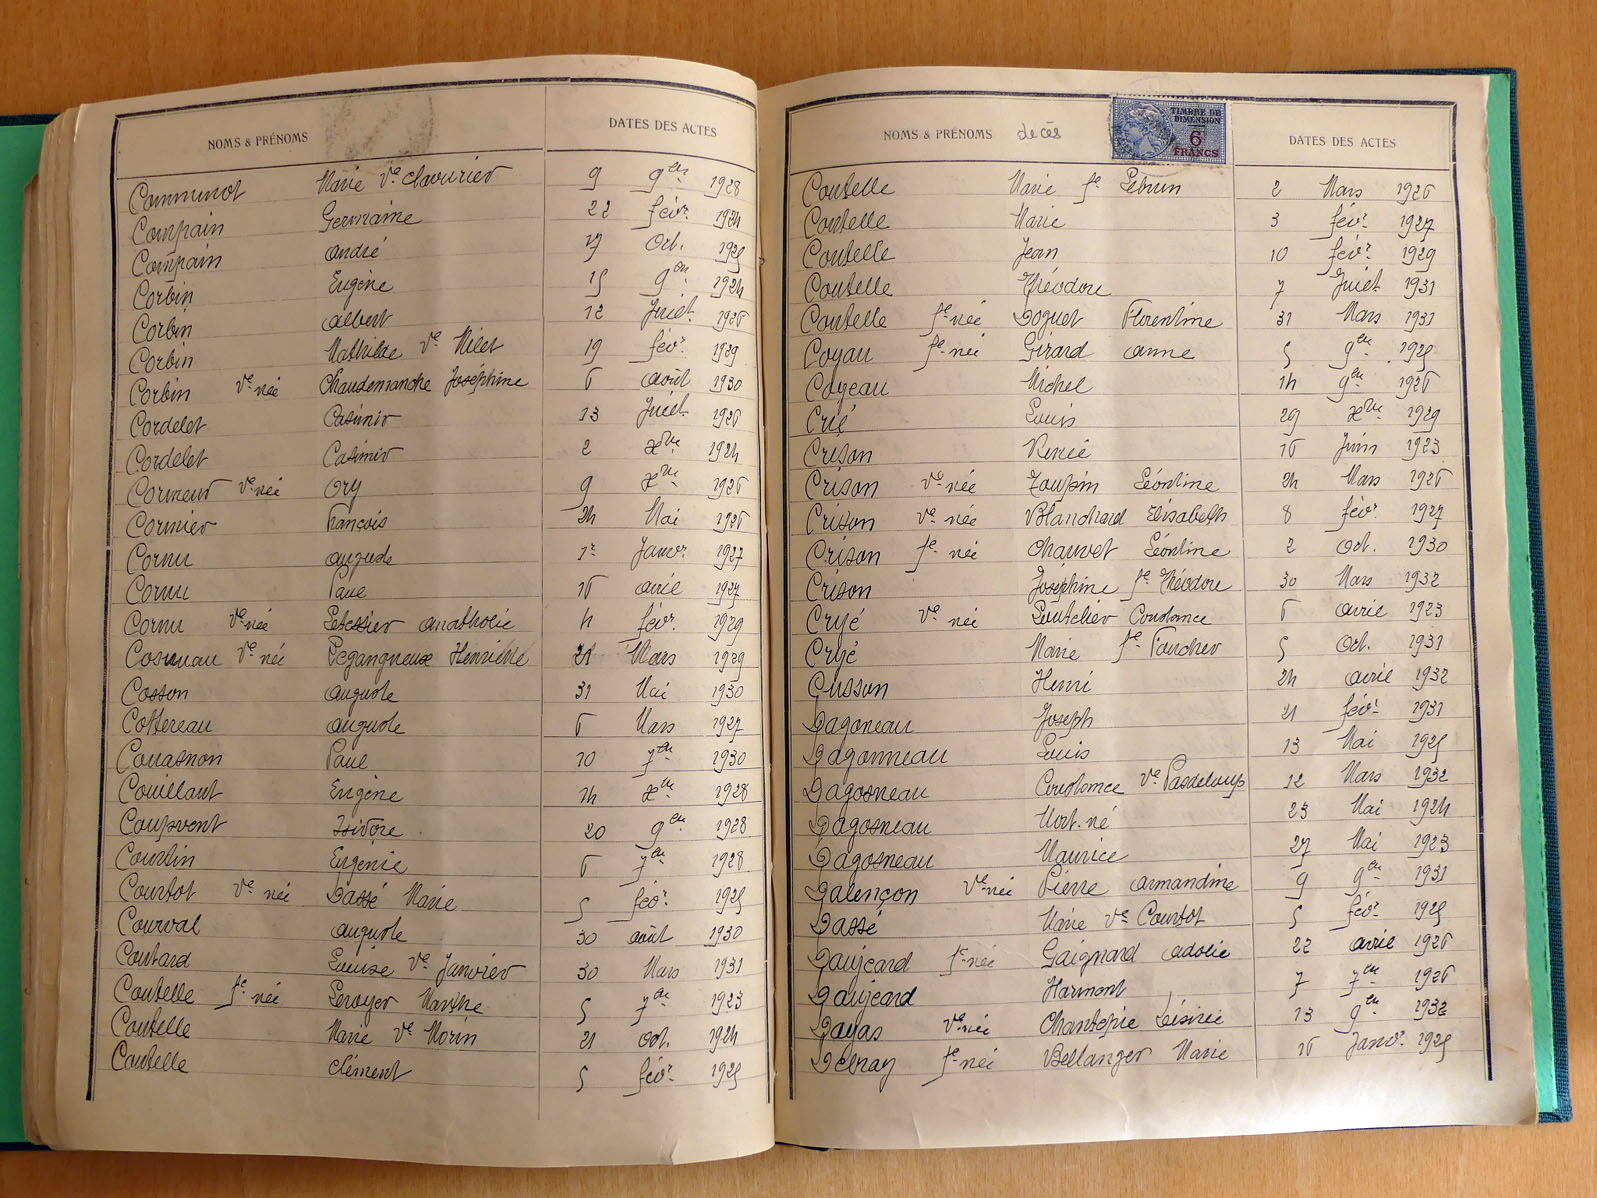 NOMS & PRÉNOMS DATES DES ACTES
Communot Marie Vve Chavirier 9 9bre 1928
Compain Germaine 22 févr. 1924
Compain André 17 Oct. 1925
Corbin Eugène 15 9bre 1924
Corbin Albert 12 Juiet 1926
Corbin Mathilde Ve Milet 19 févr 1929
Corbin Ve née Chaudemanche Joséphine 6 août 1930
Cordelet Casimir 13 Juiet 1926
Cordelet Casimir 2 Xbre 1924
Cormeur Ve née Ory 9 Xbre 1926
Cormier François 24 Mai 1926
Cornu auguste 1er Janvr 1927
Cornu Paul 16 avril 1927
Cornu Ve née Letessier anatholie 4 févr. 1929
Cosnuau Ve née Légangneux Henriette 21 Mars 1929
Cosson auguste 31 Mai 1930
Cottereau auguste 6 Mars 1927
Couasnon Paul 10 7bre 1930
Couillaut Eugène 14 Xbre 1928
Coupvent Isidore 20 9bre 1928
Courtin Eugénie 6 7bre 1928
Courtot Ve née Dassé Marie 5 févr. 1925
Courval auguste 30 août 1930
Coutard Louise Ve Janvier 30 Mars 1931
Coutelle fe née Leroyer Marthe 5 7bre 1923
Coutelle Marie Ve Morin 21 oct. 1924
Coutelle Clément 5 févr. 1925
NOMS & PRÉNOMS decès DATES DES ACTES
TIMBRE DE DIMENSION
6 FRANCS
Coutelle Marie fe Lebrun 2 Mars 1926
Coutelle Marie 3 févr 1927
Coutelle Jean 10 févr. 1929
Coutelle Théodore 7 Juiet 1931
Coutelle fe née Doguet Florentine 31 Mars 1931
Coyau fe née Girard anne 5 9bre 1925
Coyeau Michel 14 9bre 1926
Crié Louis 29 Xbre 1929
Crison Renée 16 Juin 1923
Crison Ve née Toupin Léontine 24 Mars 1926
Crison Ve née Blanchard Elisabeth 8 févr 1927
Crison fe née Chauvet Léontine 2 Oct. 1930
Crison Joséphine fe Théodore 30 Mars 1932
Cryé Ve née Loutelier Constance 6 avril 1923
Cryé Marie fe Foucher 5 Oct. 1931
Cusson Henri 24 avril 1932
Dagoneau Joseph 21 févr 1931
Dagonneau Louis 13 Mai 1925
Dagosneau Constance Ve Pasdeloup 12 Mars 1932
Dagosneau Mort-né 23 Mai 1924
Dagosneau Maurice 27 Mai 1923
Dalençon Ve née Pierre armandine 9 9bre 1931
Dassé Marie Ve Courtot 5 févr. 1925
Daujeard fe née Gaignard adolie 22 avril 1926
Daujeard Harmont 7 7bre 1926
Dayas Ve née Chantepie Désirée 13 9bre 1932
Debray fe née Bellanger Marie 16 Janvr. 1925